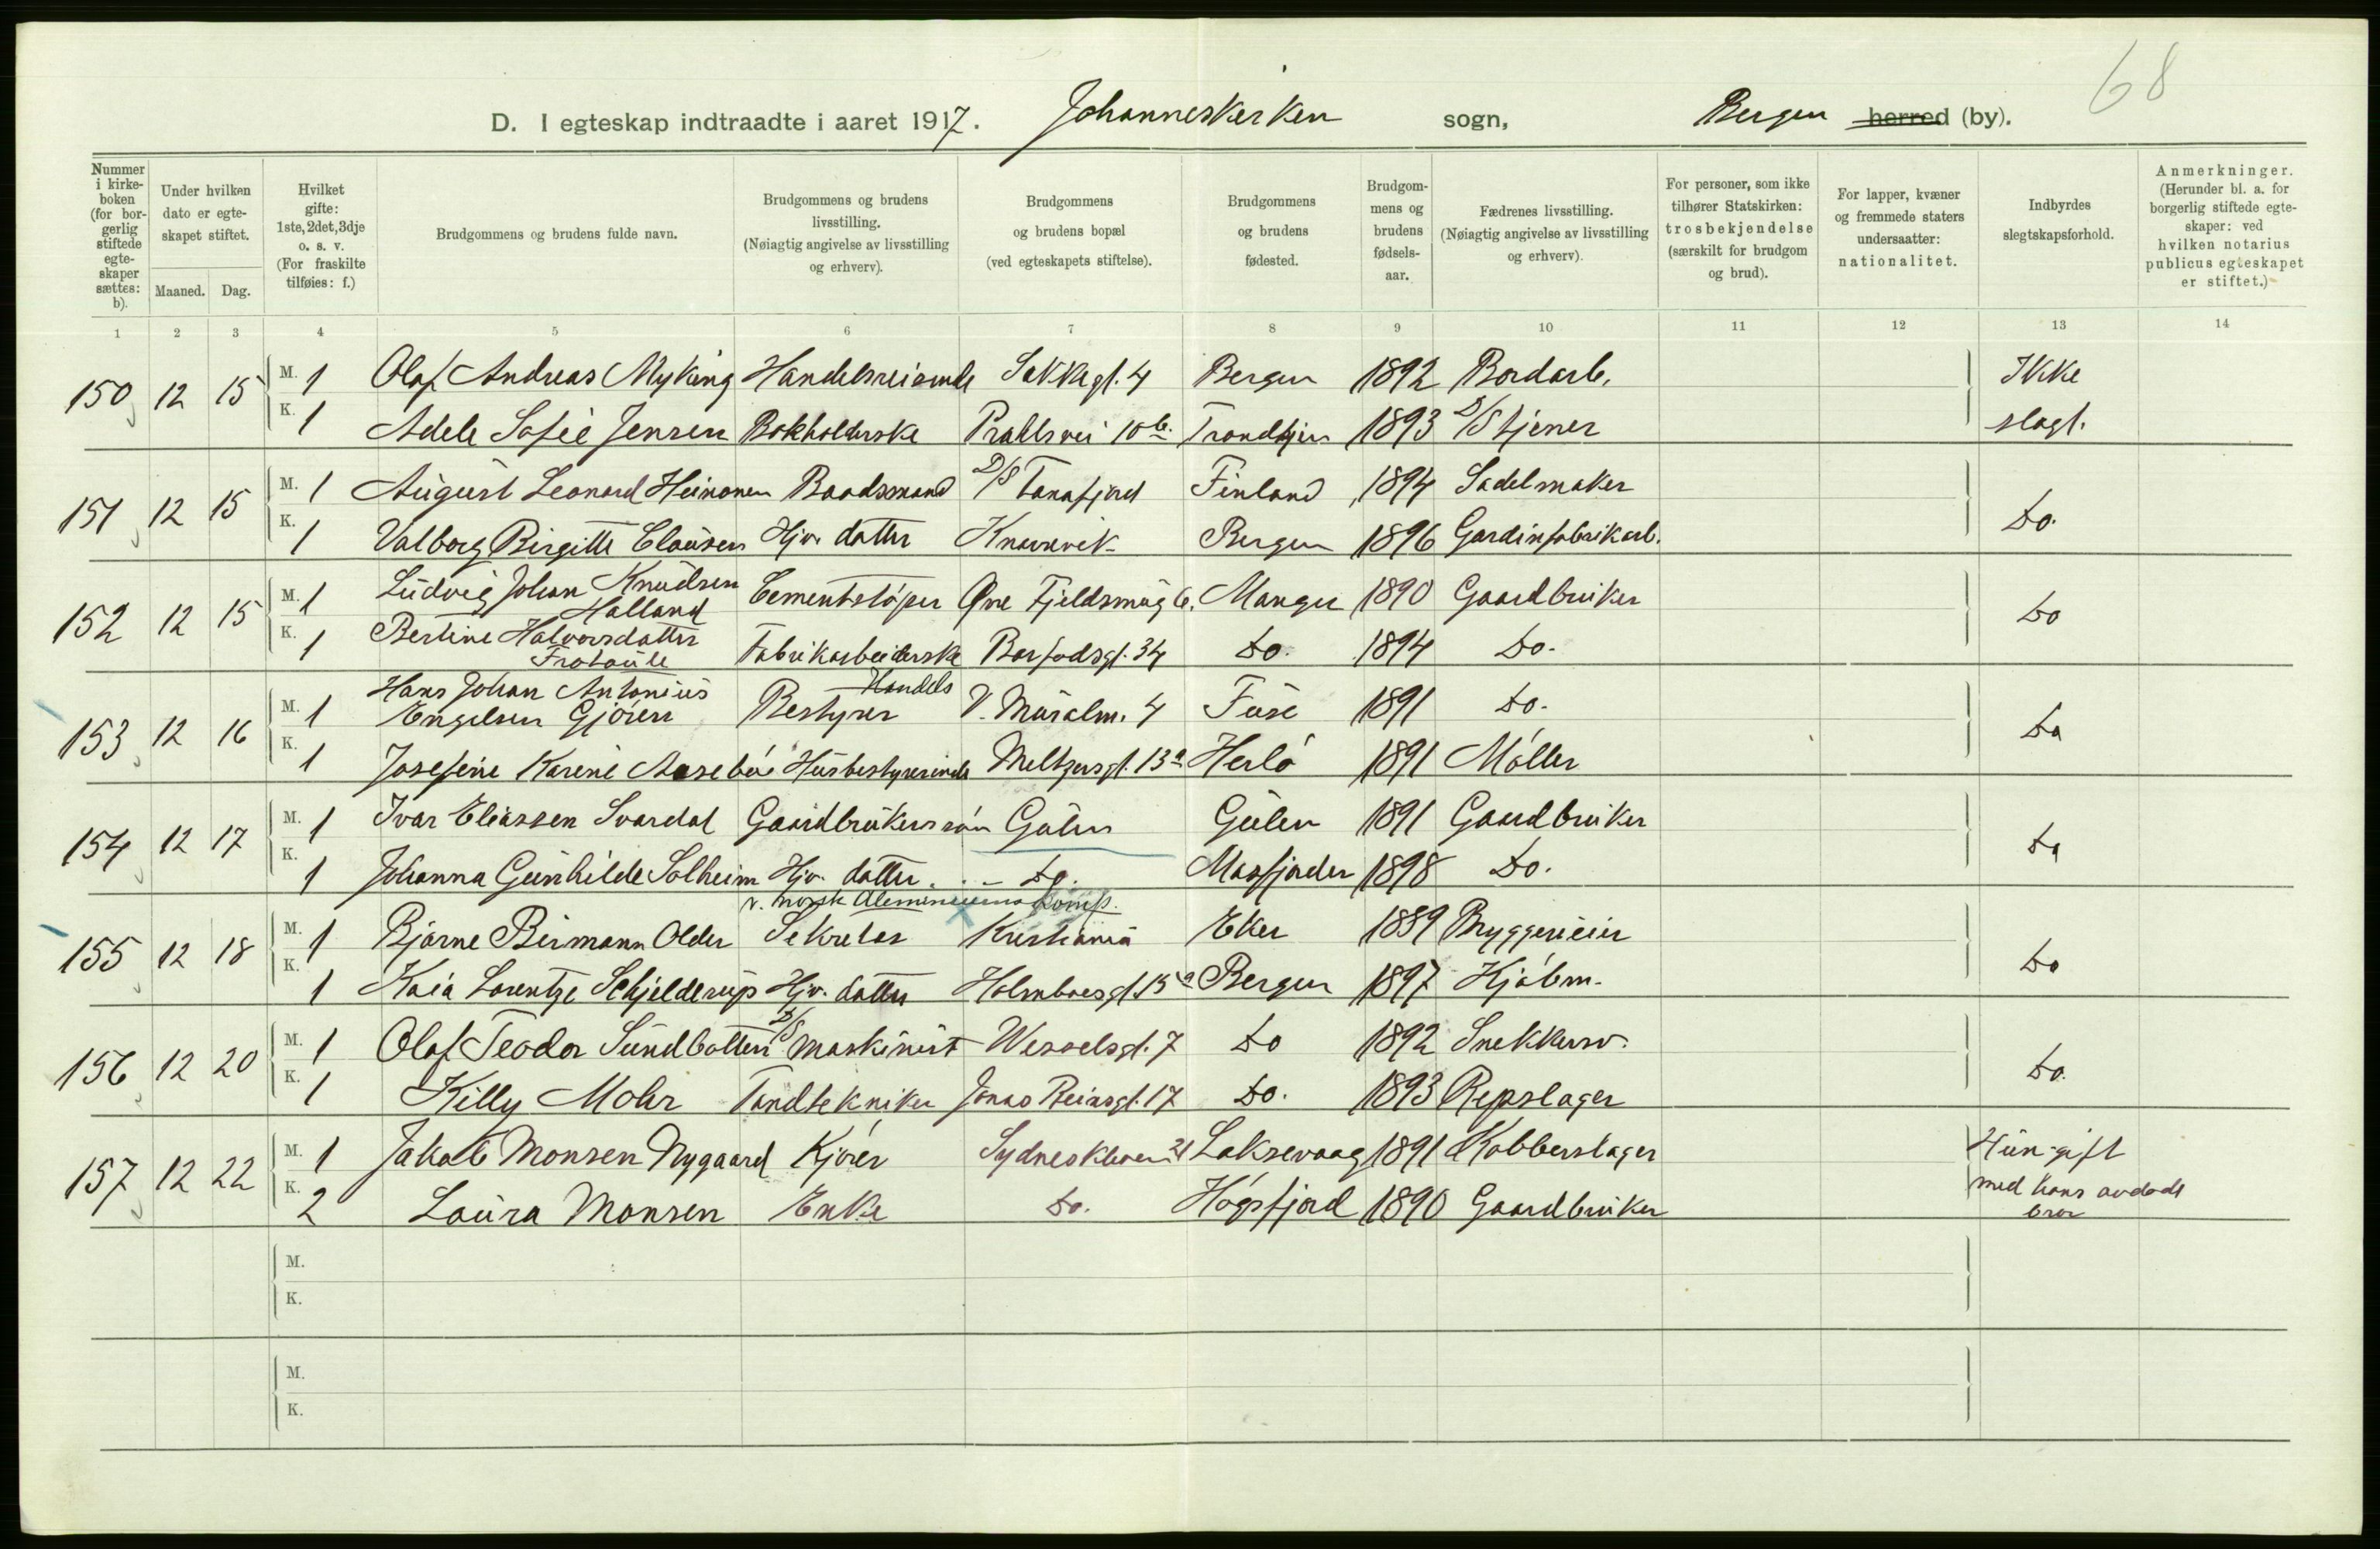 68
D. I egteskap indtraadte i aaret 1917. Johanneskirken sogn, Bergen herred (by).
Nummer i kirkeboken (for borgerlig stiftede egteskaper sættes: b).
Under hvilken dato er egteskapet stiftet.
Maaned. Dag.
Hvilket gifte: 1ste, 2det, 3dje o. s. v. (For fraskilte tilføies: f.)
Brudgommens og brudens fulde navn.
Brudgommens og brudens livsstilling. (Nøiagtig angivelse av livsstilling og erhverv).
Brudgommens og brudens bopæl (ved egteskapets stiftelse).
Brudgommens og brudens fødested.
Brudgommens og brudens fødselsaar.
Fædrenes livsstilling. (Nøiagtig angivelse av livsstilling og erhverv).
For personer, som ikke tilhører Statskirken: trosbekjendelse (særskilt for brudgom og brud).
For lapper, kvæner og fremmede staters undersaatter: nationalitet.
Indbyrdes slegtskapsforhold.
Anmerkninger. (Herunder bl. a. for borgerlig stiftede egteskaper: ved hvilken notarius publicus egteskapet er stiftet.)
1 2 3 4 5 6 7 8 9 10 11 12 13 14
150 12 15 M. 1 Olaf Andreas Myking Handelsreisende Sakkegt. 4 Bergen 1892 Bordarb. Ikke
K. 1 Adele Sofie Jensen Bokholderske Prahlsvei 10b. Trondhjem 1893 D/S tjener slegt.
151 12 15 M. 1 August Leonard Heinonen Baadsmand D/S Tanafjord Finland 1894 Sadelmaker Do.
K. 1 Valborg Birgitte Clausen Hjv. datter Knarvik Bergen 1896 Gardinfabrikarb.
152 12 15 M. 1 Ludvig Johan Knudsen Halland Cementstøper Øvre Fjeldsmug 6. Manger 1890 Gaardbruker Do
K. 1 Bertine Halvorsdatter Fabrikarbeiderske Barfodsgt. 34 Do. 1894 Do.
153 12 16 M. 1 Hans Johan Antonius Engelsen Gjøren Handels Bestyrer V. Muralm. 4 Fuse 1891 Do. Do
K. 1 Josefine Karine Aasebø Husbestyrerinde Meltzersgt. 13a Herlø 1891 Møller
154 12 17 M. 1 Ivar Eliassen Svardal Gaardbrukersøn Gulen Gulen 1891 Gaardbruker Do
K. 1 Johanna Gunhilde Solheim Hjv. datter . . - Do. Masfjorden 1898 Do.
v. Norsk Aleminiums Komp.
155 12 18 M. 1 Bjarne Birmann Older Sekretær Kristiania Eker 1889 Bryggerieier Do
K. 1 Kaia Lorentze Schjelderup Hjv. datter Holmboesgt. 15a Bergen 1897 Kjøbm.
156 12 20 M. 1 Olaf Teodor Sundbotten D/S Maskinist Wesselsgt. 7 Do 1892 Snekkersv. Do.
K. 1 Killy Mohr Tandtekniker Jonas Reinsgt. 17 Do. 1893 Repslager
157 12 22 M. 1 Jakob Monsen Nygaard Kjører Sydneskleven 21 Laksevaag 1891 Kobberslager Hun gift
K. 2 Laura Monsen Enke Do. Høgsfjord 1890 Gaardbruker med hans avdøde
bror
M.
K.
M.
K.